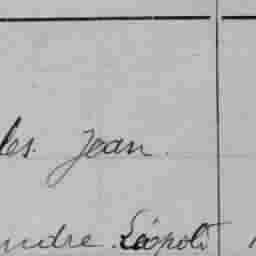 les. Jean.
andre Léopold